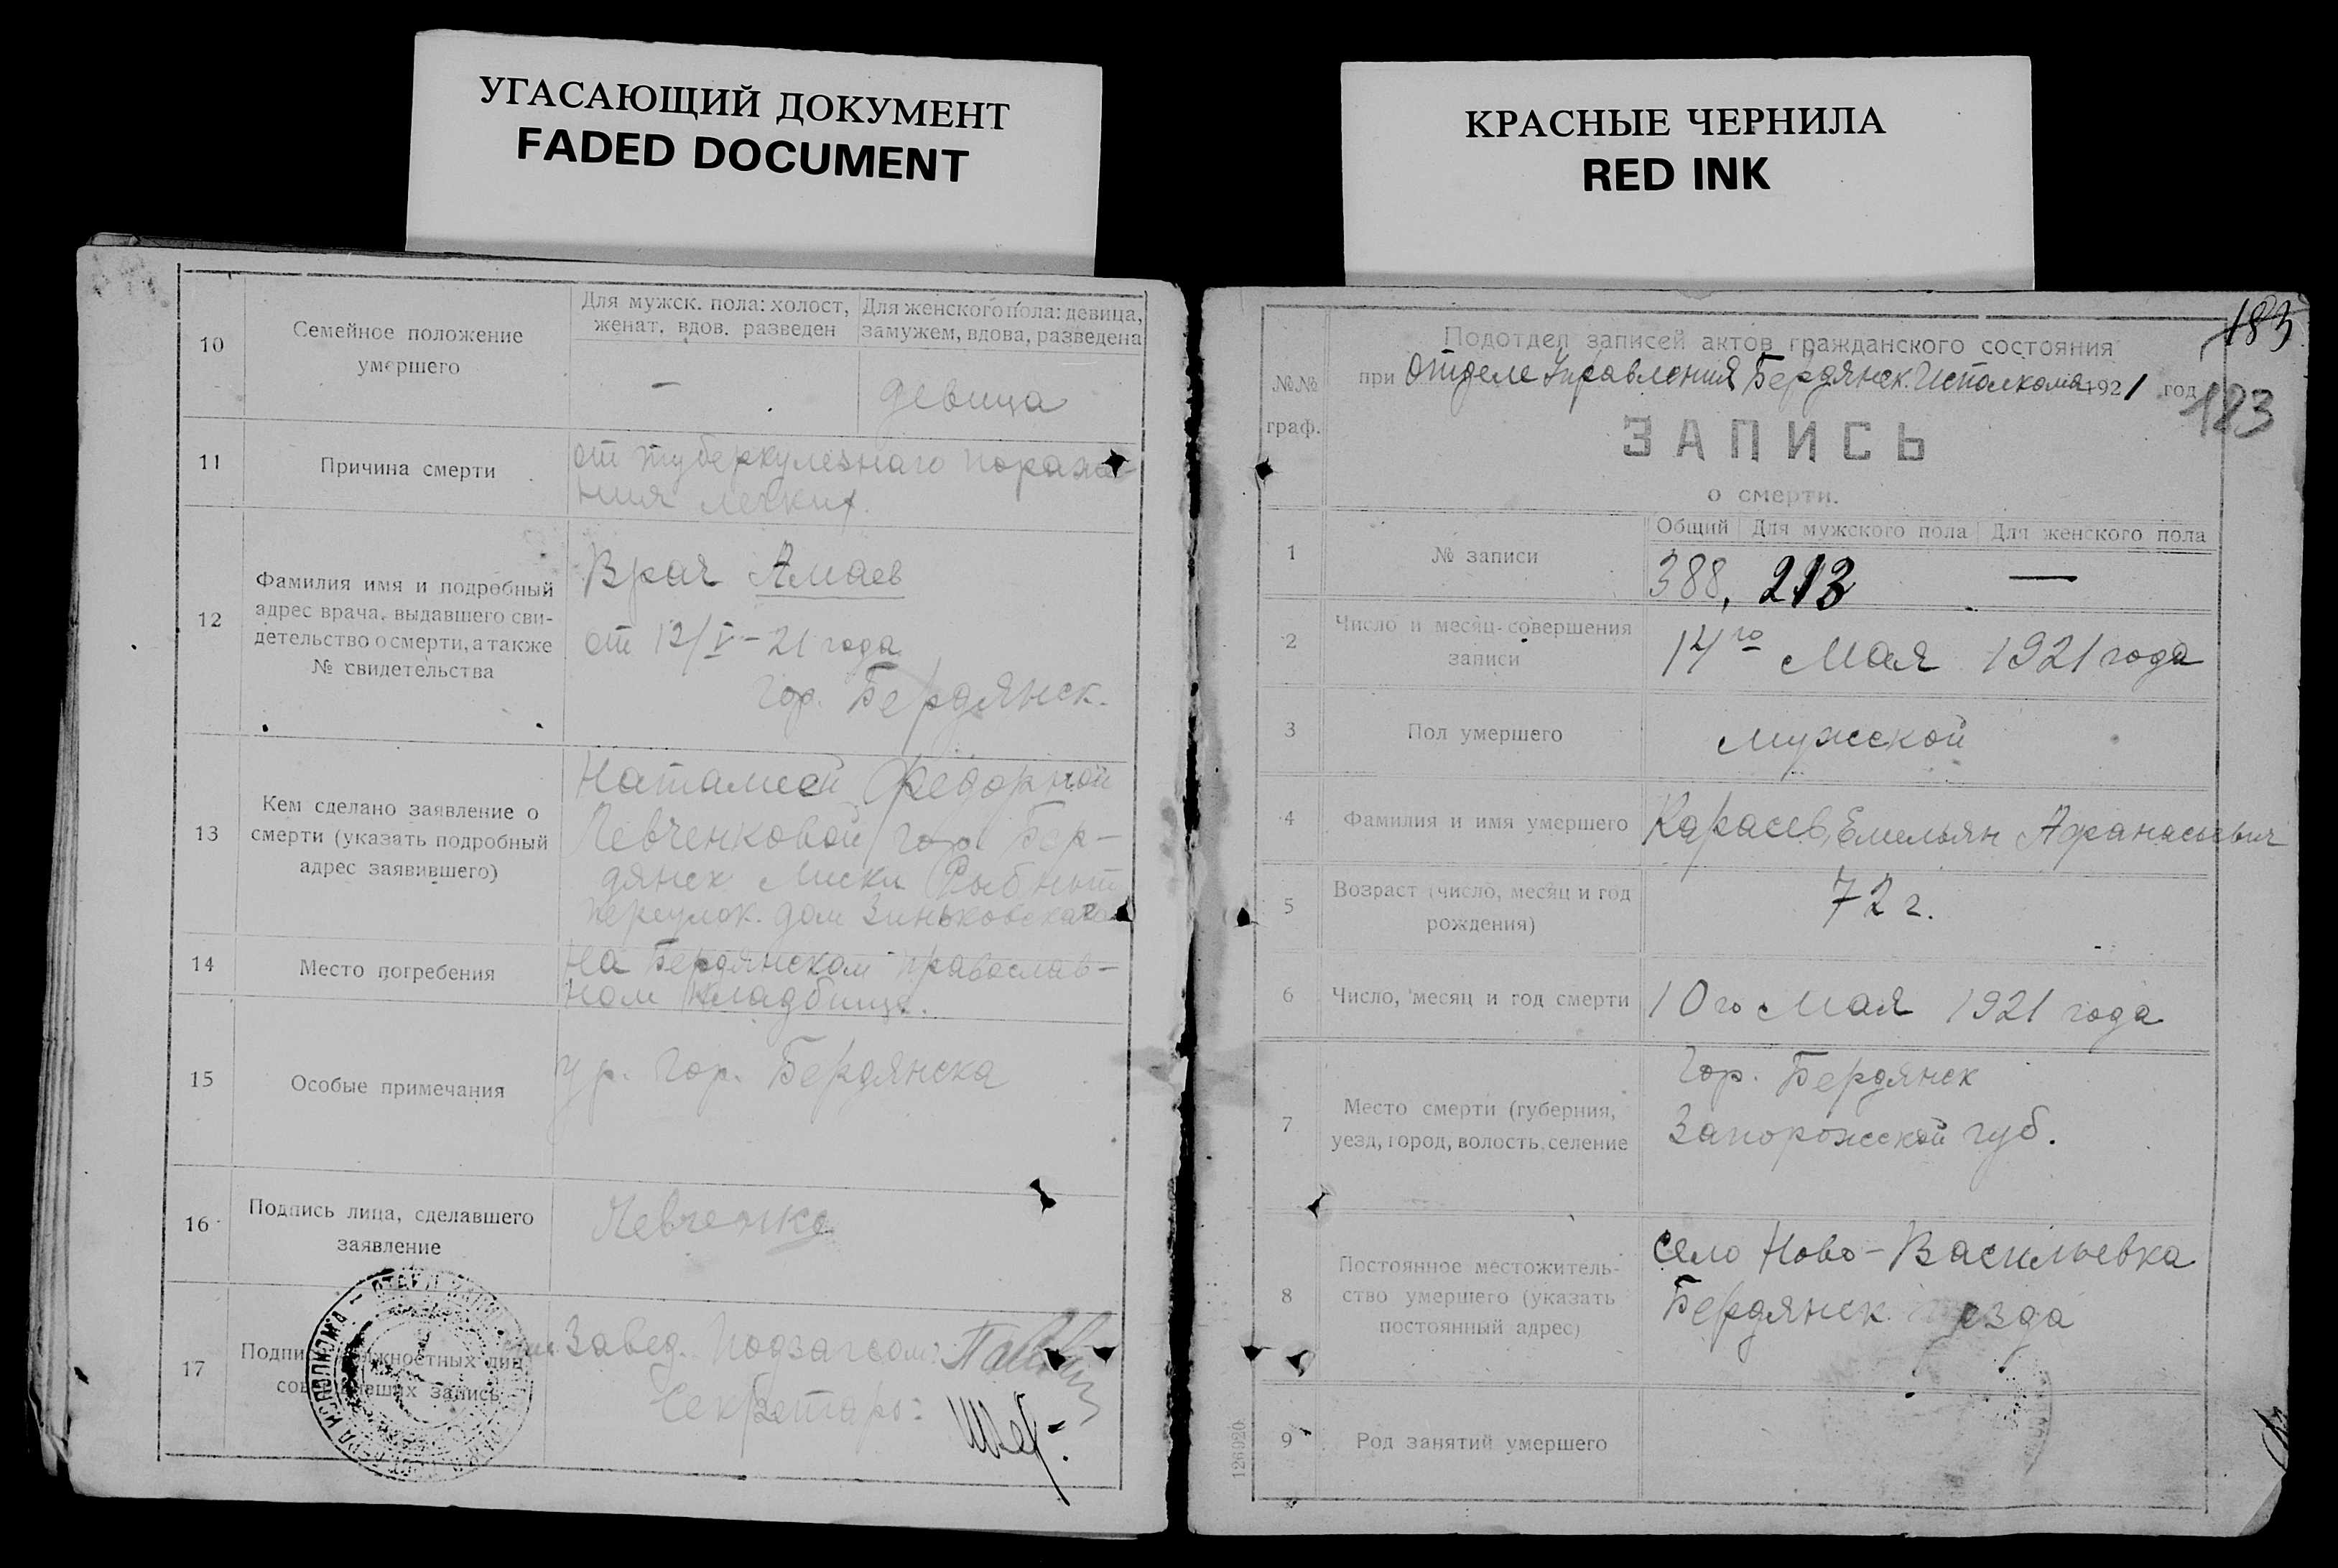 УГАСАЮЩИЙ ДОКУМЕНТ
FADED DOCUMENT
КРАСНЫЕ ЧЕРНИЛА
RED INK
10
Семейное положение
умершего
Для мужск. пола: холост,
женат, вдов. разведен
Для женского пола: девица,
замужем, вдова, разведена
—
девица
11
Причина смерти
от туберкулезнаго пораже-
ния легких.
12
Фамилия имя и подробный
адрес врача, выдавшего сви-
детельство о смерти, а также
№ свидетельства
Врач Амаев
от 12/V-21 года
гор. Бердянск.
13
Кем сделано заявление о
смерти (указать подробный
адрес заявившего)
Наталией Федорной
Левченковой гор. Бер-
дянск Лиски Рыбный
переулок. дом Зиньковскаго
14
Место погребения
На Бердянском православ-
ном кладбище.
15
Особые примечания
ур. гор. Бердянска
16
Подпись лица, сделавшего
заявление
Левченко
17
Подписи должностных лиц
совершивших запись
Завед. Подзагсом:
Секретарь:
183
183
№№
граф.
Подотдел записей актов гражданского состояния
при Отделе Управления Бердянск. Исполкома 1921 год
ЗАПИСЬ
о смерти.
1
№ записи
Общий Для мужского пола Для женского пола
388. 213 —
2
Число и месяц совершения
записи
14го Мая 1921 года
3
Пол умершего
мужской
4
Фамилия и имя умершего
Карасев, Емельян Афанасьевич
5
Возраст (число, месяц и год
рождения)
72 г.
6
Число, месяц и год смерти
10го Мая 1921 года
7
Место смерти (губерния,
уезд, город, волость, селение
Гор. Бердянск
Запорожской губ.
8
Постоянное местожитель-
ство умершего (указать
постоянный адрес)
село Ново-Васильевка
Бердянск. уезда
9
Род занятий умершего
126920